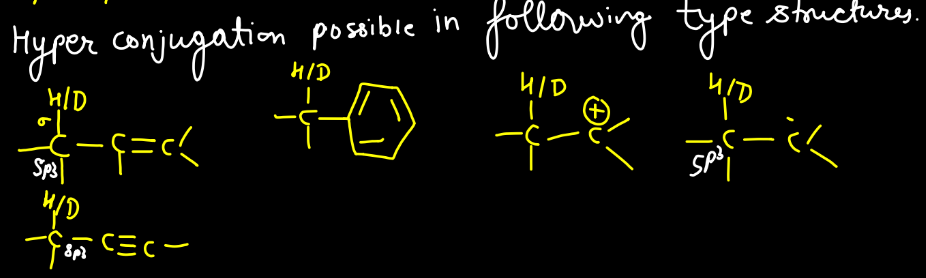 Hyper conjugation possible in following type structures.
H/D H/D H/D H/D
σ
-C-C=C< -C- -C-C⊕< -C-Ċ<
Sp3 SP3
H/D
-C-C≡C-
Sp3